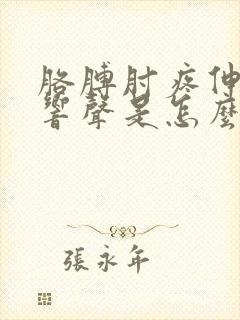 胳膊肘疼伸
響聲是怎麼
張永年